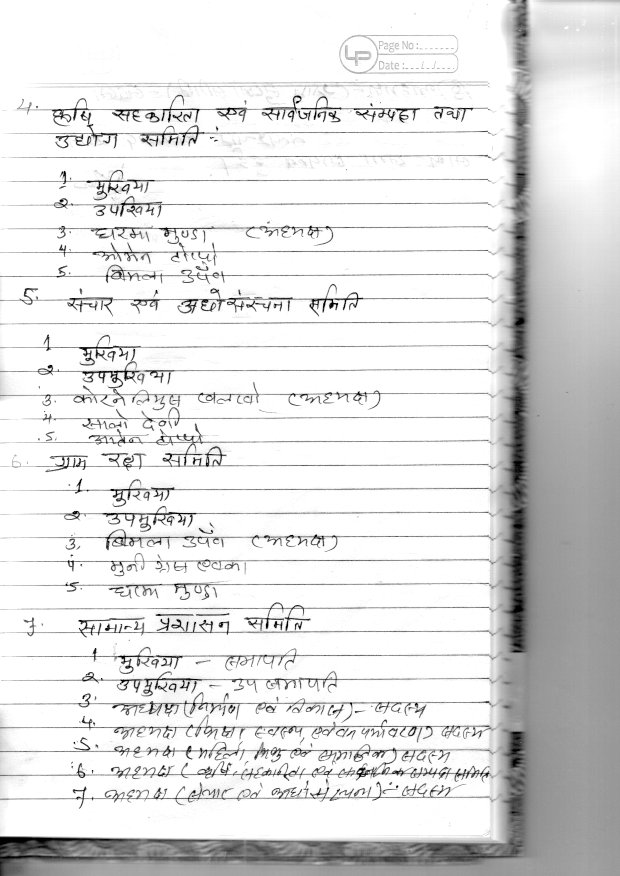 LP
Page No :.......
Date :.../.../...
4. कृषि सहकारिता एवं सार्वजनिक संम्पदा तथा
उद्योग समिति :-
1. मुखिया
2. उपखिया
3. धरमा मुण्डा (अध्यक्ष)
4. टोप्पो
5. बिमला उराँव
5. संचार एवं अधोसंरचना समिति
1 मुखिया
2. उपमुखिया
3. (अध्यक्ष)
4. सालो देवी
5. टोप्पो
6. ग्राम रक्षा समिति
1. मुखिया
2. उपमुखिया
3. बिमला उराँव (अध्यक्ष)
4. मुनी
5. धरमा मुण्डा
7. सामान्य प्रशासन समिति
1 मुखिया – सभापति
2. उपमुखिया – उप सभापति
3. अध्यक्ष (निर्माण एवं विकास) – सदस्य
4. अध्यक्ष (शिक्षा, स्वास्थ्य एवं पर्यावरण) सदस्य
5. अध्यक्ष (महिला शिशु एवं सामाजिक) सदस्य
6. अध्यक्ष (कृषि, सहकारिता एवं सार्वजनिक सम्पदा समिति
7. अध्यक्ष (संचार एवं अधोसंरचना) :- सदस्य